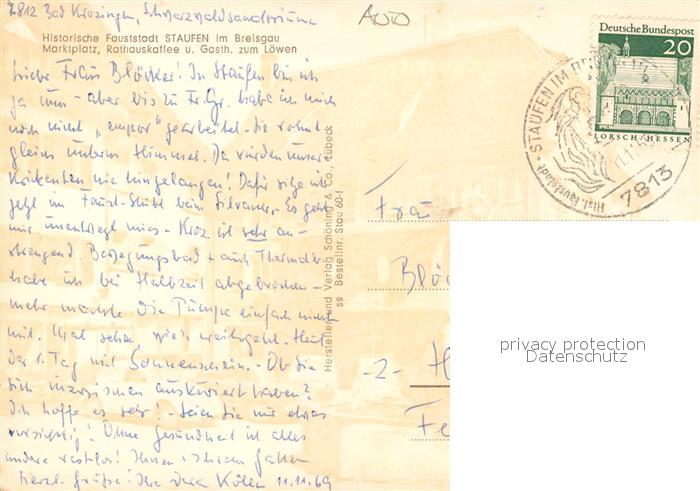 7812 Bad Krozingen, Schwarzwaldsanatorium
Historische Fauststadt STAUFEN im Breisgau
Marktplatz, Rathauskaffee u. Gasth. zum Löwen
Liebe Frau Blöcker! In Staufen bin ich
ja nun - aber bis zu Fr. Gr. habe ich mich
noch nicht „empor" gearbeitet. Sie wohnt
gleich unterm Himmel. Da würden unsere
nie hingelangen! Dafür sitze ich
jetzt im Faust-Stube beim Silvaner. Es geht
mir unentwegt mies. Kroz. ist sehr an-
strengend. Bewegungsbad + auch Thermalb.
habe ich bei Halbzeit abgebrochen -
mehr machte die Pumpe einfach nicht
mit. Mal sehen, wie's weitergeht. Heut
der 1. Tag mit Sonnenschein. - Ob Sie
sich inzwischen auskuriert haben?
Ich hoffe es sehr! - Seien Sie nur etwas
vorsichtig! Ohne Gesundheit ist alles
andere wertlos! Ihnen + Ihrem Gatten
herzl. Grüße! Ihre Vera Köhn 11.11.69
Hersteller und Verlag Schöning & Co., Lübeck
ss Bestellnr. Stau 60-f
Deutsche Bundespost
20
LORSCH/HESSEN
STAUFEN IM BREISGAU
Hist. Fauststadt
7813
Frau
Blöc
-2- H
Fe
privacy protection
Datenschutz